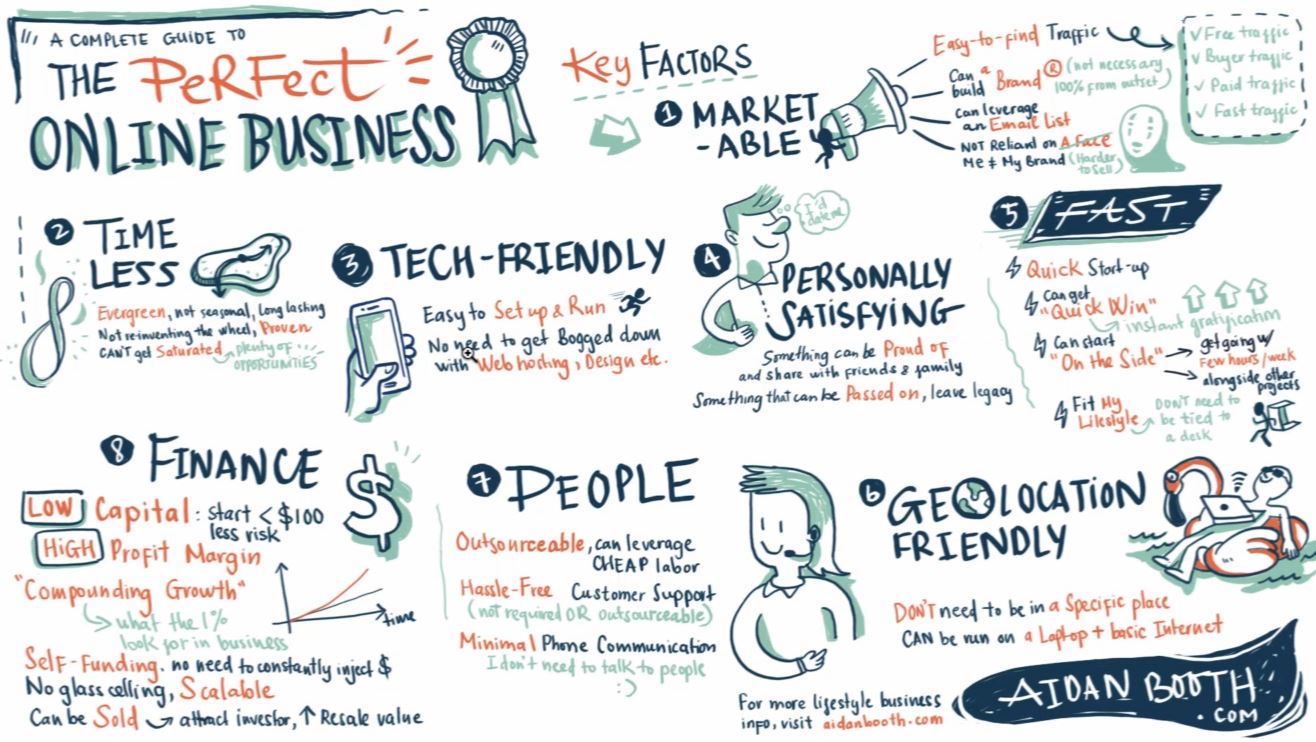 A COMPLETE GUIDE TO
THE PeRFect
ONLINE BUSINESS
Key FACTORS
1 MARKET
-ABLE
Easy-to-find Traffic
Can build a Brand ® (not necessary
100% from outset)
can leverage
an Email List
NOT Reliant on A Face
Me ≠ My Brand (Harder
to Sell)
✓ Free traffic
✓ Buyer traffic
✓ Paid traffic
✓ Fast traffic
2 TIME
LESS
Evergreen, not seasonal, long lasting
Not reinventing the wheel, Proven
CAN'T get Saturated plenty of
OPPORTUNITIES
3 TECH-FRIENDLY
Easy to Set up & Run
No need to get Bogged down
with Web hosting, Design etc.
4 PERSONALLY
SATISFYING
I'd
date me
Something can be Proud of
and share with friends & family
Something that can be Passed on, leave legacy
5 FAST
Quick Start-up
Can get
"Quick Win"
instant gratification
Can start
"On the Side"
get going w/
Few hours/week
alongside other
projects
Fit My
Lifestyle
DON'T need to
be tied to
a desk
8 FINANCE
$
LOW Capital: start < $100
less risk
HIGH Profit Margin
"Compounding Growth"
what the 1%
look for in business
time
Self-Funding. no need to constantly inject $
No glass ceiling, Scalable
Can be Sold attract investor, ↑ Resale value
7 PEOPLE
Outsourceable, can leverage
CHEAP labor
Hassle-Free Customer Support
(not required OR outsourceable)
Minimal Phone Communication
I don't need to talk to people
:)
6 GEOLOCATION
FRIENDLY
DON'T need to be in a Specific place
CAN be run on a Laptop + basic Internet
For more lifestyle business
info, visit aidanbooth.com
AIDAN BOOTH
.COM